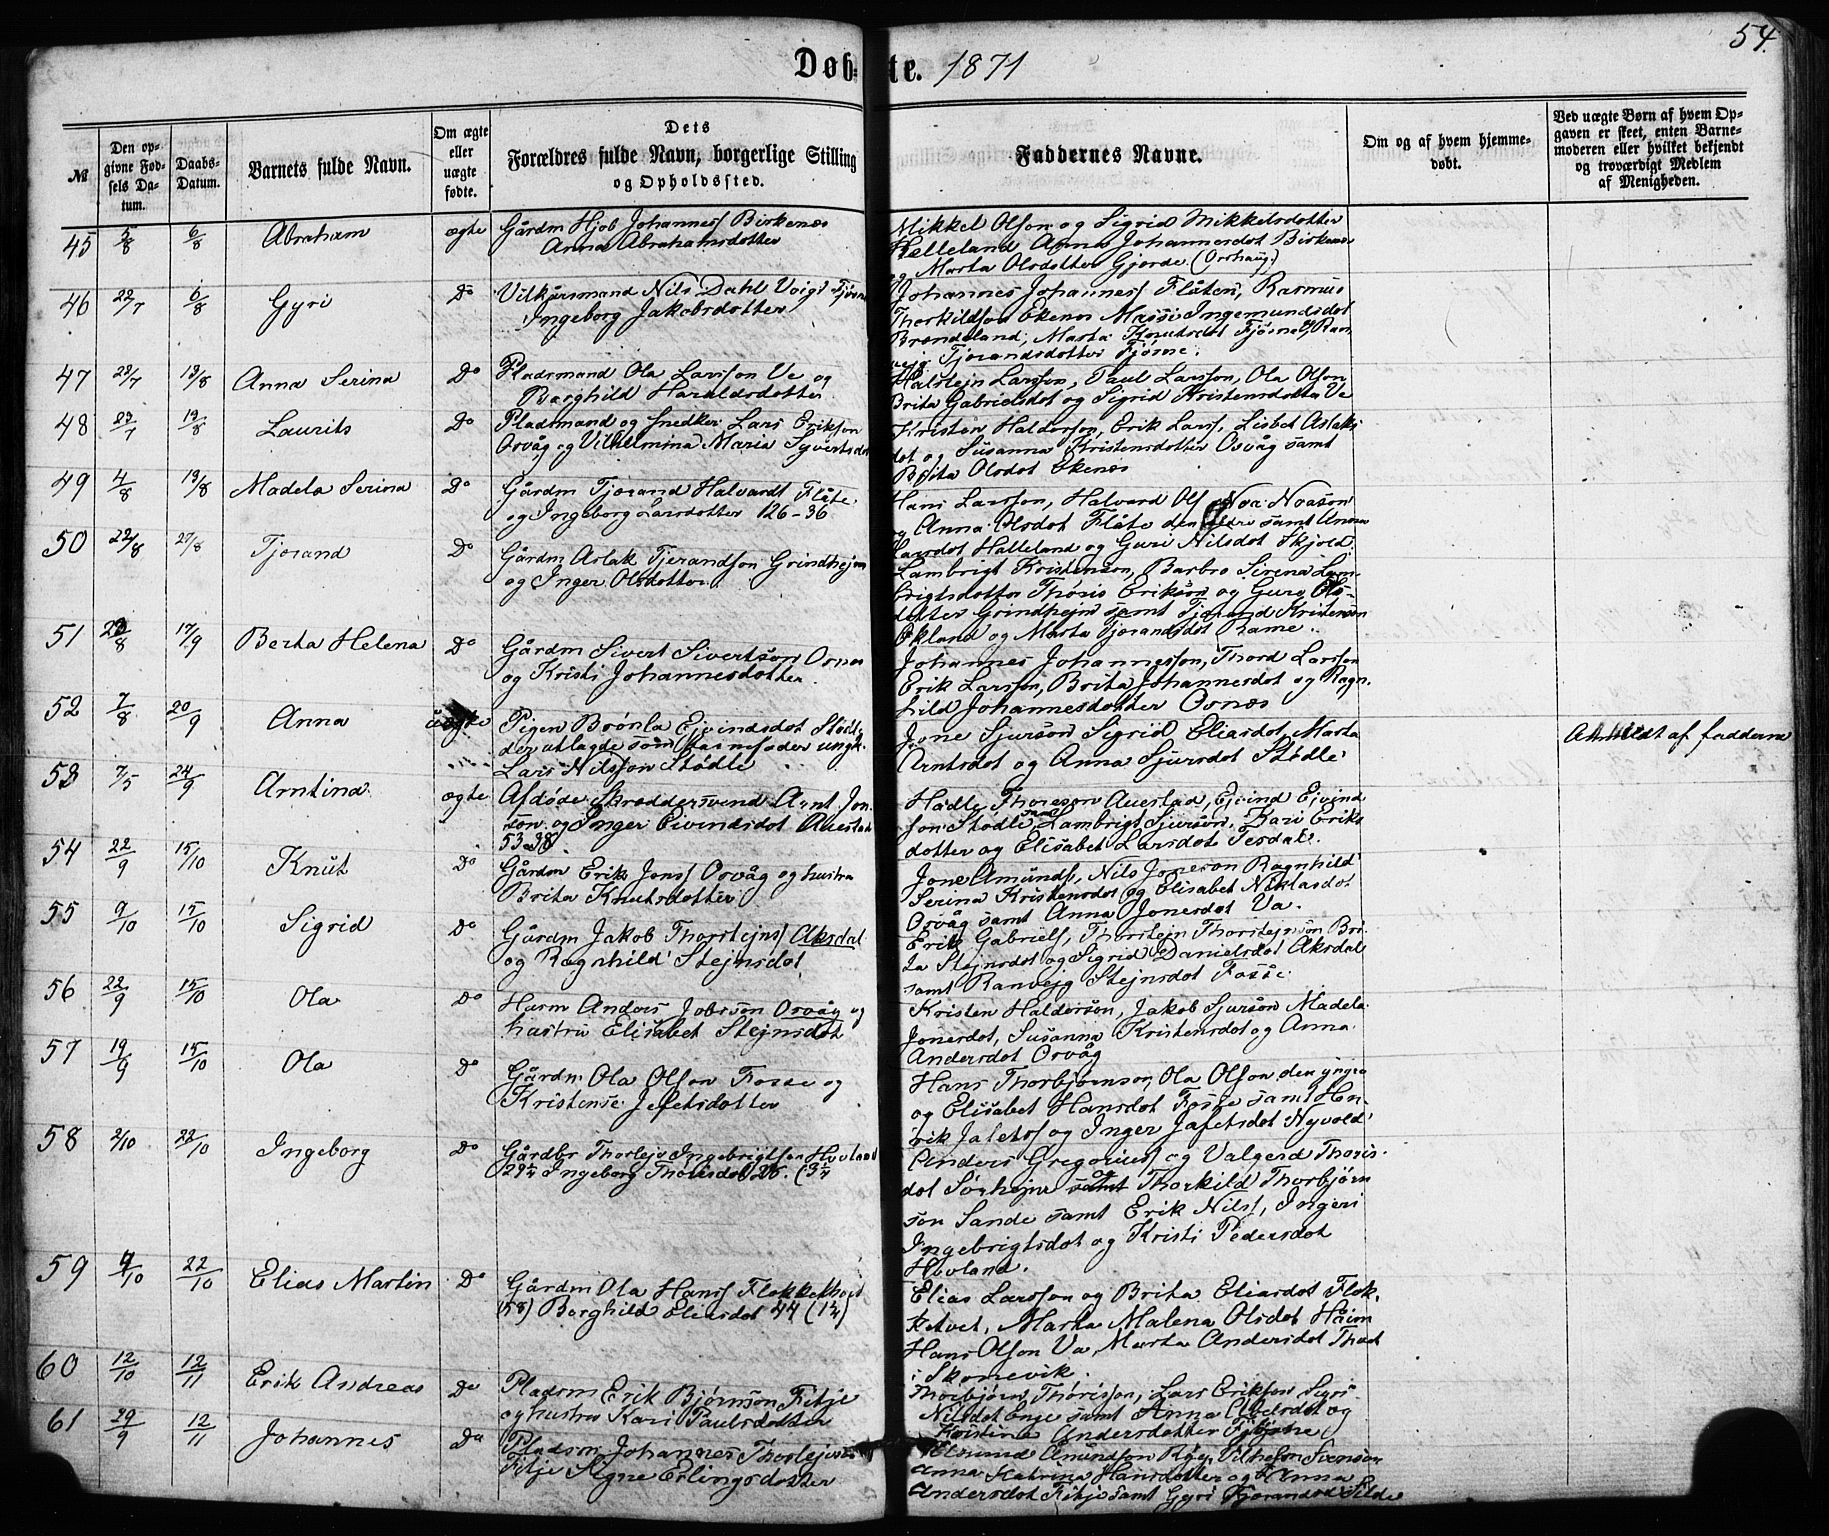 54.
Døbte. 1871
№
Den opgivne Fødsels Datum.
Daabs-Datum.
Barnets fulde Navn.
Om ægte eller uægte fødte.
Dets Forældres fulde Navn, borgerlige Stilling og Opholdssted.
Faddernes Navne.
Om og af hvem hjemmedøbt.
Ved uægte Børn af hvem Opgaven er skeet, enten Barnemoderen eller hvilket bekjendt og troværdigt Medlem af Menigheden.
45 5/8 6/8 Abraham ægte Gårdm Hjob Johannesſ Birkenes
Anna Abrahamsdotter
Mikkel Olson og Sigrid Mikkelsdotter
Helleland Anna Johannesdot Birkenes
og Marta Olsdotter Gjerde. (Orshaug.)
46 6/8 Gyri Do Vilkårsmand Nils Dahl Voigt
Ingeborg Jakobsdotter
Johannes Johannesſ Flåten, Rasmus
Thorkildson Ekenes Ingemundsdot
Brendeland, Marta Knutsdot Fjøsne og Ran
vejg Tjerandsdotter Fjøsne.
47 29/7 13/8 Anna Serina Do Pladsmand Ola Larsson Ve og
Borghild Haraldsdotter
Halstejn Larsson, Paul Larsson, Ola Olson
Brita Gabrielsdot og Sigrid Kristensdotter Ve
48 13/8 Laurits Do Pladsmand og Snedker Lars Erikson
Orvåg og Vilhelmina Maria Syvertsdot
Kristen Halderson, Erik Larsſ, Lisbet Aslaks
dot og Susanna Kristensdotter Orvåg samt
Brita Olsdot Ekenes
49 4/8 13/8 Madela Serina Do Gårdm Tjerand Halvardſ Flåte
og Ingeborg Larsdotter 126-36
Hans Larsson, Halvard Olſ Noa Noason
og Anna Olsdot Flåte den eldre samt Anna
Larsdot Halleland og Guri Nilsdot Skjold.
50 22/8 27/8 Tjerand Do Gårdm Aslak Tjerandson Grindhejm
og Inger Olsdotter
Lambrigt Kristenson, Barbro Serina Lam-
brigtsdotter Thoris Erikson og Guro Ols-
dotter Grindhejm samt Tjerand Kristenson
Økland og Marta Tjerandsdot Rame.
51 17/9 Berta Helena Do Gårdm Sivert Sivertson Ornes
og Kristi Johannesdotter.
Johannes Johannesson, Thord Larsson
Erik Larsson, Brita Johannesdot og Ragn-
hild Johannesdotter Ornes
52 7/8 20/9 Anna uægte Pigen Brønla Ejvindsdot Stødle
der utlagde som barnefader ungk.
Lars Nilsson Stødle
Jone Sjurson Sigrid Eliasdot Marta
Arntsdot og Anna Sjursdot Stødle
Anmeldt af faddern
53 7/5 24/9 Arntina ægte Afdøde Skreddersvend Arnt Jon-
son og Inger Eivindsdot Auestad
53-38.
Hadle Thoreson Auestad, Ejvind Ejvind
son Stødle samt Lambrigt Sjurson, Kari Eriks
dotter og Elisabet Larsdot Tesdal.
54 22/9 15/10 Knut Do Gårdm Erik Jonsſ Orvåg og hustru
Brita Knutsdotter
Jone Amundſ, Nils Joneson Ragnhild
Serina Kristensdot og Elisabet Niklasdot
Orvåg samt Anna Jonesdot Va.
55 9/10 15/10 Sigrid Do Gårdm Jakob Thorstejnsſ Aksdal
og Ragnhild Stejnsdot
Erik Gabrielſ, Thorstejn Thorstejnson Bri-
ta Stejnsdot og Sigrid Danielsdot Aksdal
samt Ranvejg Stejnsdot Fosse
56 22/9 15/10 Ola Do Husm Anders Jobsson Orvåg og
hustru Elisabet Stejnsdot
Kristen Halderson, Jakob Sjurson Madela
Jonesdot, Susanna Kristensdot og Anna
Andersdot Orvåg
57 19/9 15/10 Ola Do Gårdm Ola Olson Fosse og
Kristense Jefetsdotter
Hans Thorbjørnson, Ola Olson den yngre
og Elisabet Hansdot Fosse samt Hen-
rik Jafetsſ og Inger Jafetsdot Nyvold
58 2/10 22/10 Ingeborg Do Gårdbr Thorlejv Ingebrigtson Hovland
29 1/4 Ingeborg Thorisdot 26. (3 1/4
Anders Gregoriusſ og Valgerd Thoris-
dot Sørhejm og Thorkild Thorbjørn
son Sande samt Erik Nilsſ, Ingeri
Ingebrigtsdot og Kristi Pedersdot
Hovland.
59 9/10 22/10 Elias Martin Do Gårdm Ola Hansſ Flokketvejt
(58) Borghild Eliasdot 44 (1 1/4)
Elias Larsson og Brita Eliasdot Flok-
ketvet, Marta Malena Olsdot Heim
Hans Olson Va, Marta Andersdot Tvedt
i Skonevik.
60 12/10 12/11 Erik Andreas Do Pladsm Erik Bjørnson Fitje
og hustru Kari Paulsdotter
Thorbjørn Thorisson, Lars Erikson Sigri
Nilsdot Enje samt Anna Abelsdot og
Kristine Andersdotter Fitje
61 29/9 12/11 Johannes Do Pladsm Johannes Thorlejvson
Fitje Signe Erlingsdotter
Amund Amundson Ryg, Vilhelm Svenson
Anna Katrina Hansdotter og Anna
Andersdot Fitje samt Gyri Tjerandsd Silde